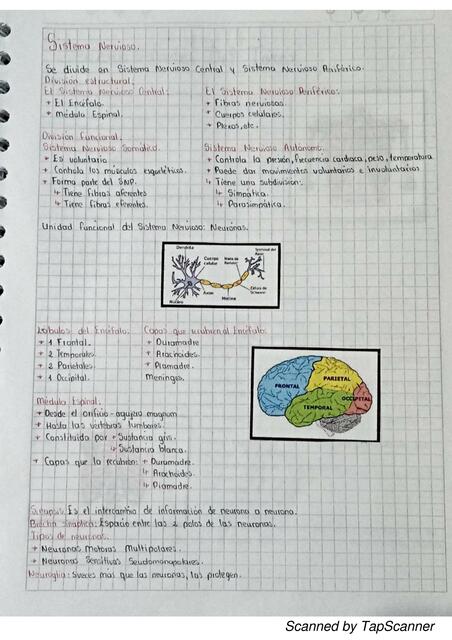 Sistema Nervioso.
Se divide en Sistema Nervioso Central y Sistema Nervioso Periférico.
División estructural:
El Sistema Nervioso Central:
+ El Encéfalo.
+ médula Espinal.
El Sistema Nervioso Periférico:
+ Fibras nerviosas.
+ Cuerpos celulares.
+ Plexos, etc.
División funcional:
Sistema Nervioso Somático.
+ Es voluntario
+ Controla los músculos esqueléticos.
+ Forma parte del SNP.
↳ Tiene fibras aferentes
↳ Tiene fibras eferentes.
Sistema Nervioso Autónomo.
+ Controla la presión, frecuencia cardiaca, peso, temperatura
+ Puede dar movimientos voluntarios e involuntarios
+ Tiene una subdivisión:
↳ Simpática.
↳ Parasimpática.
Unidad funcional del Sistema Nervioso: Neuronas.
Dendrita
Cuerpo celular
Núcleo
Axón
Mielina
Lobulos del Encéfalo:
+ 1 Frontal.
+ 2 Temporales.
+ 2 Parietales
+ 1 Occipital.
Capas que recubren al Encéfalo:
+ Duramadre
+ Aracnoides.
+ Piamadre.
meninges.
FRONTAL
PARIETAL
OCCIPITAL
TEMPORAL
Médula Espinal:
+ Desde el orificio - agujero magnum
+ Hasta las vértebras lumbares.
+ Constituida por + Sustancia gris.
↳ Sustancia blanca.
+ Capas que la recubren: + Duramadre.
↳ Aracnoides
↳ Piamadre.
Sinapsis: Es el intercambio de información de neurona a neurona.
Espacio entre las 2 polos de las neuronas.
Tipos de neuronas.
+ Neuronas Motoras Multipolares.
+ Neuronas Sensitivas Seudomonopolares.
Neuroglia: 5 veces más que las neuronas, las protegen.
Scanned by TapScanner